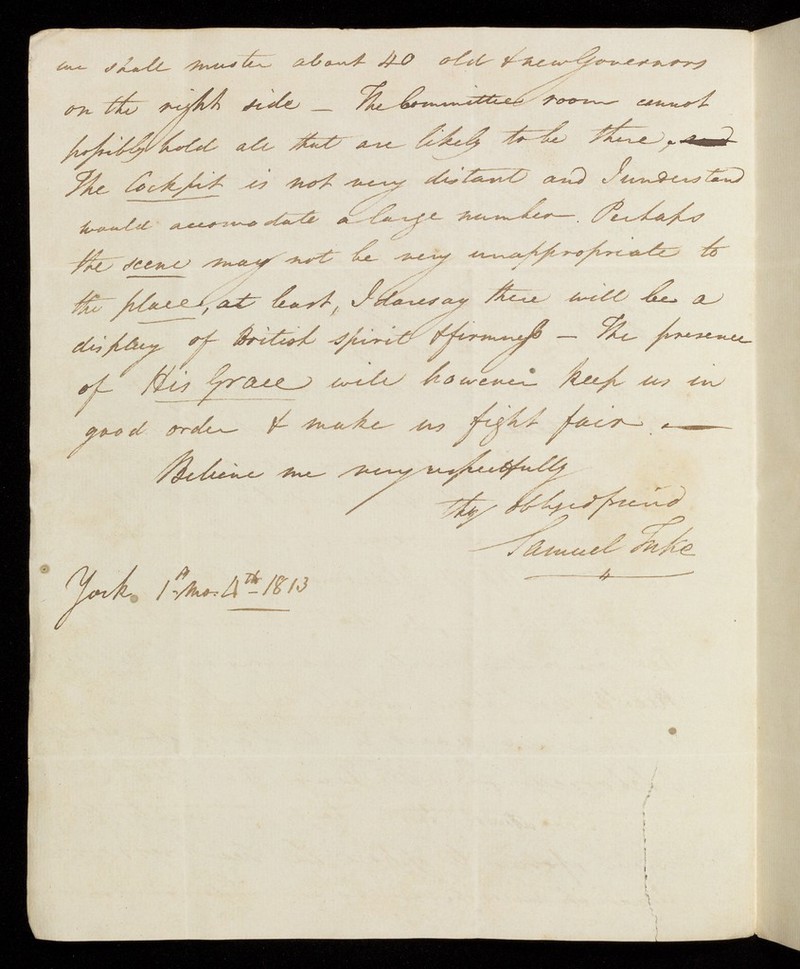 we shall muster about 40 old & new Governors
on the right side — The Committee room cannot
possibly hold all that are likely to be there, and
The Cockpit is not very distant and I understand
would accomodate a large number. Perhaps
the scene may not be very unappropriate to
the place, at least, I daresay there will be a
display of British spirit & firmness — The presence
of His Grace will however keep us in
good order & make us fight fair. —
Believe me very respectfully
thy obliged friend
Samuel Tuke
York 1st Mo. 4th 1813